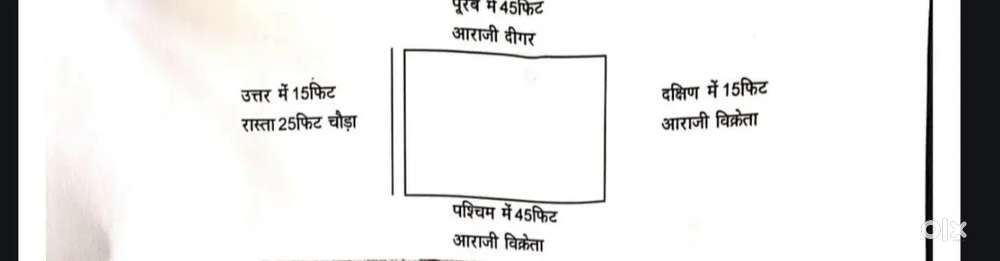 पूरब में 45फिट
आराजी दीगर
उत्तर में 15फिट
रास्ता 25फिट चौड़ा
दक्षिण में 15फिट
आराजी विक्रेता
पश्चिम में 45फिट
आराजी विक्रेता
olx